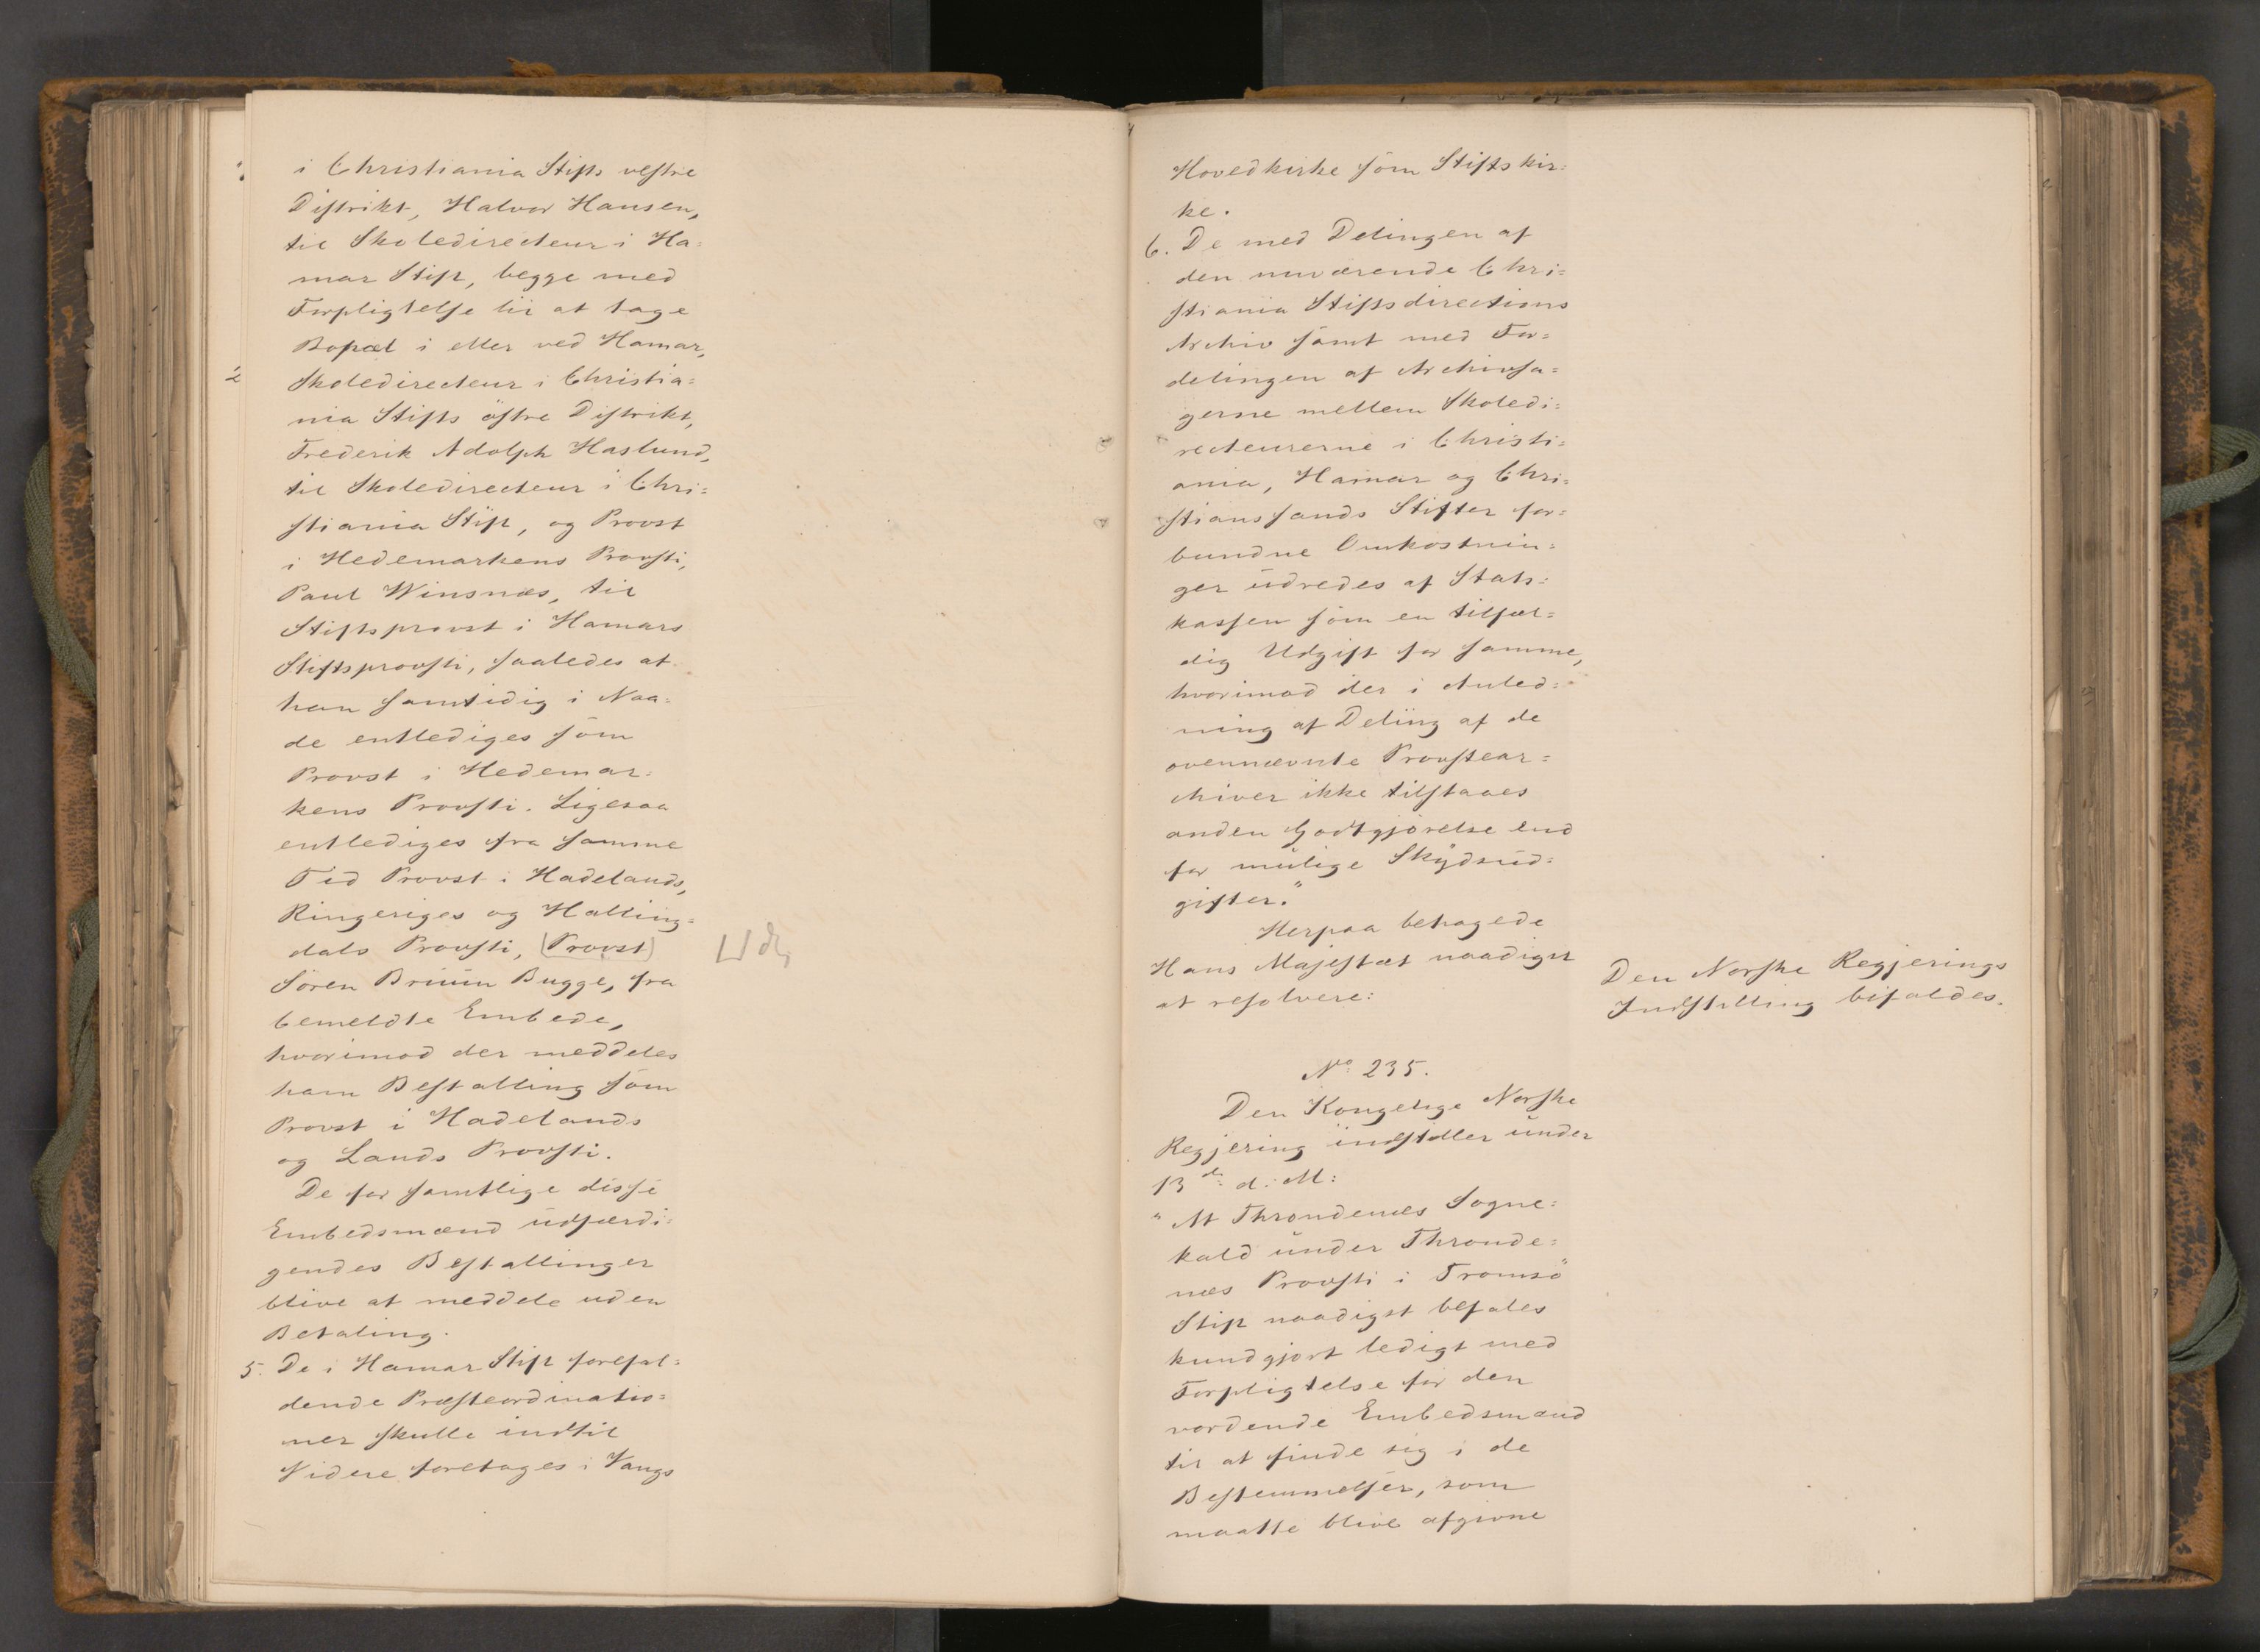 i Christiania Stifts vestre
Distrikt, Halvor Hansen,
til Skoledirecteur i Ha=
mar Stift, begge med
Forpligtelse til at tage
Bopæl i eller ved Hamar,
2 Skoledirecteur i Christia=
nia Stifts östre Distrikt,
Frederik Adolph Haslund,
til Skoledirecteur i Chri=
stiania Stift, og Provst
i Hedemarkens Provsti,
Paul Winsnæs, til
Stiftsprovst i Hamars
Stiftsprovsti, saaledes at
han samtidig i Naa=
de entlediges som
Provst i Hedemar=
kens Provsti. Ligesaa
entlediges fra samme
Tid Provst i Hadelands,
Ringeriges og Halling=
dals Provsti, [Provst]
Sören Bruun Bugge, fra
bemeldte Embede,
hvorimod der meddeles
ham Bestalling som
Provst i Hadelands
og Lands Provsti.
De for samtlige disse
Embedsmænd udfærdi=
gendes Bestallinger
blive at meddele uden
Betaling.
5. De i Hamar Stift forefal=
dende Præsteordinatio=
ner skulle indtil
Videre foretages i Vangs
Hovedkirke som Stiftskir=
ke.
6. De med Delingen af
den nuværende Chri=
stiania Stiftsdirections
Archiv samt med For=
delingen af Archivsa=
gerne mellem Skoledi=
recteurerne i Christi=
ania, Hamar og Chri=
stianssands Stifter for=
bundne Omkostnin=
ger udredes af Stats=
kassen som en tilfæl=
dig Udgift for samme,
hvorimod der i Anled=
ning af Deling af de
ovennævnte Provstear=
chiver ikke tilstaaes
anden Godtgjörelse end
for mulige Skydsud=
gifter."
Herpaa behagede
Hans Majestæt naadigst
at resolvere:
Den Norske Regjerings
Indstilling bifaldes.
No 235.
Den Kongelige Norske
Regjering indstiller under
13de d. M:
"At Throndenæs Sogne=
kald under Thronde=
næs Provsti i Tromsö
Stift naadigst befales
kundgjort ledigt med
Forpligtelse for den
vordende Embedsmand
til at finde sig i de
Bestemmelser, som
maatte blive afgivne